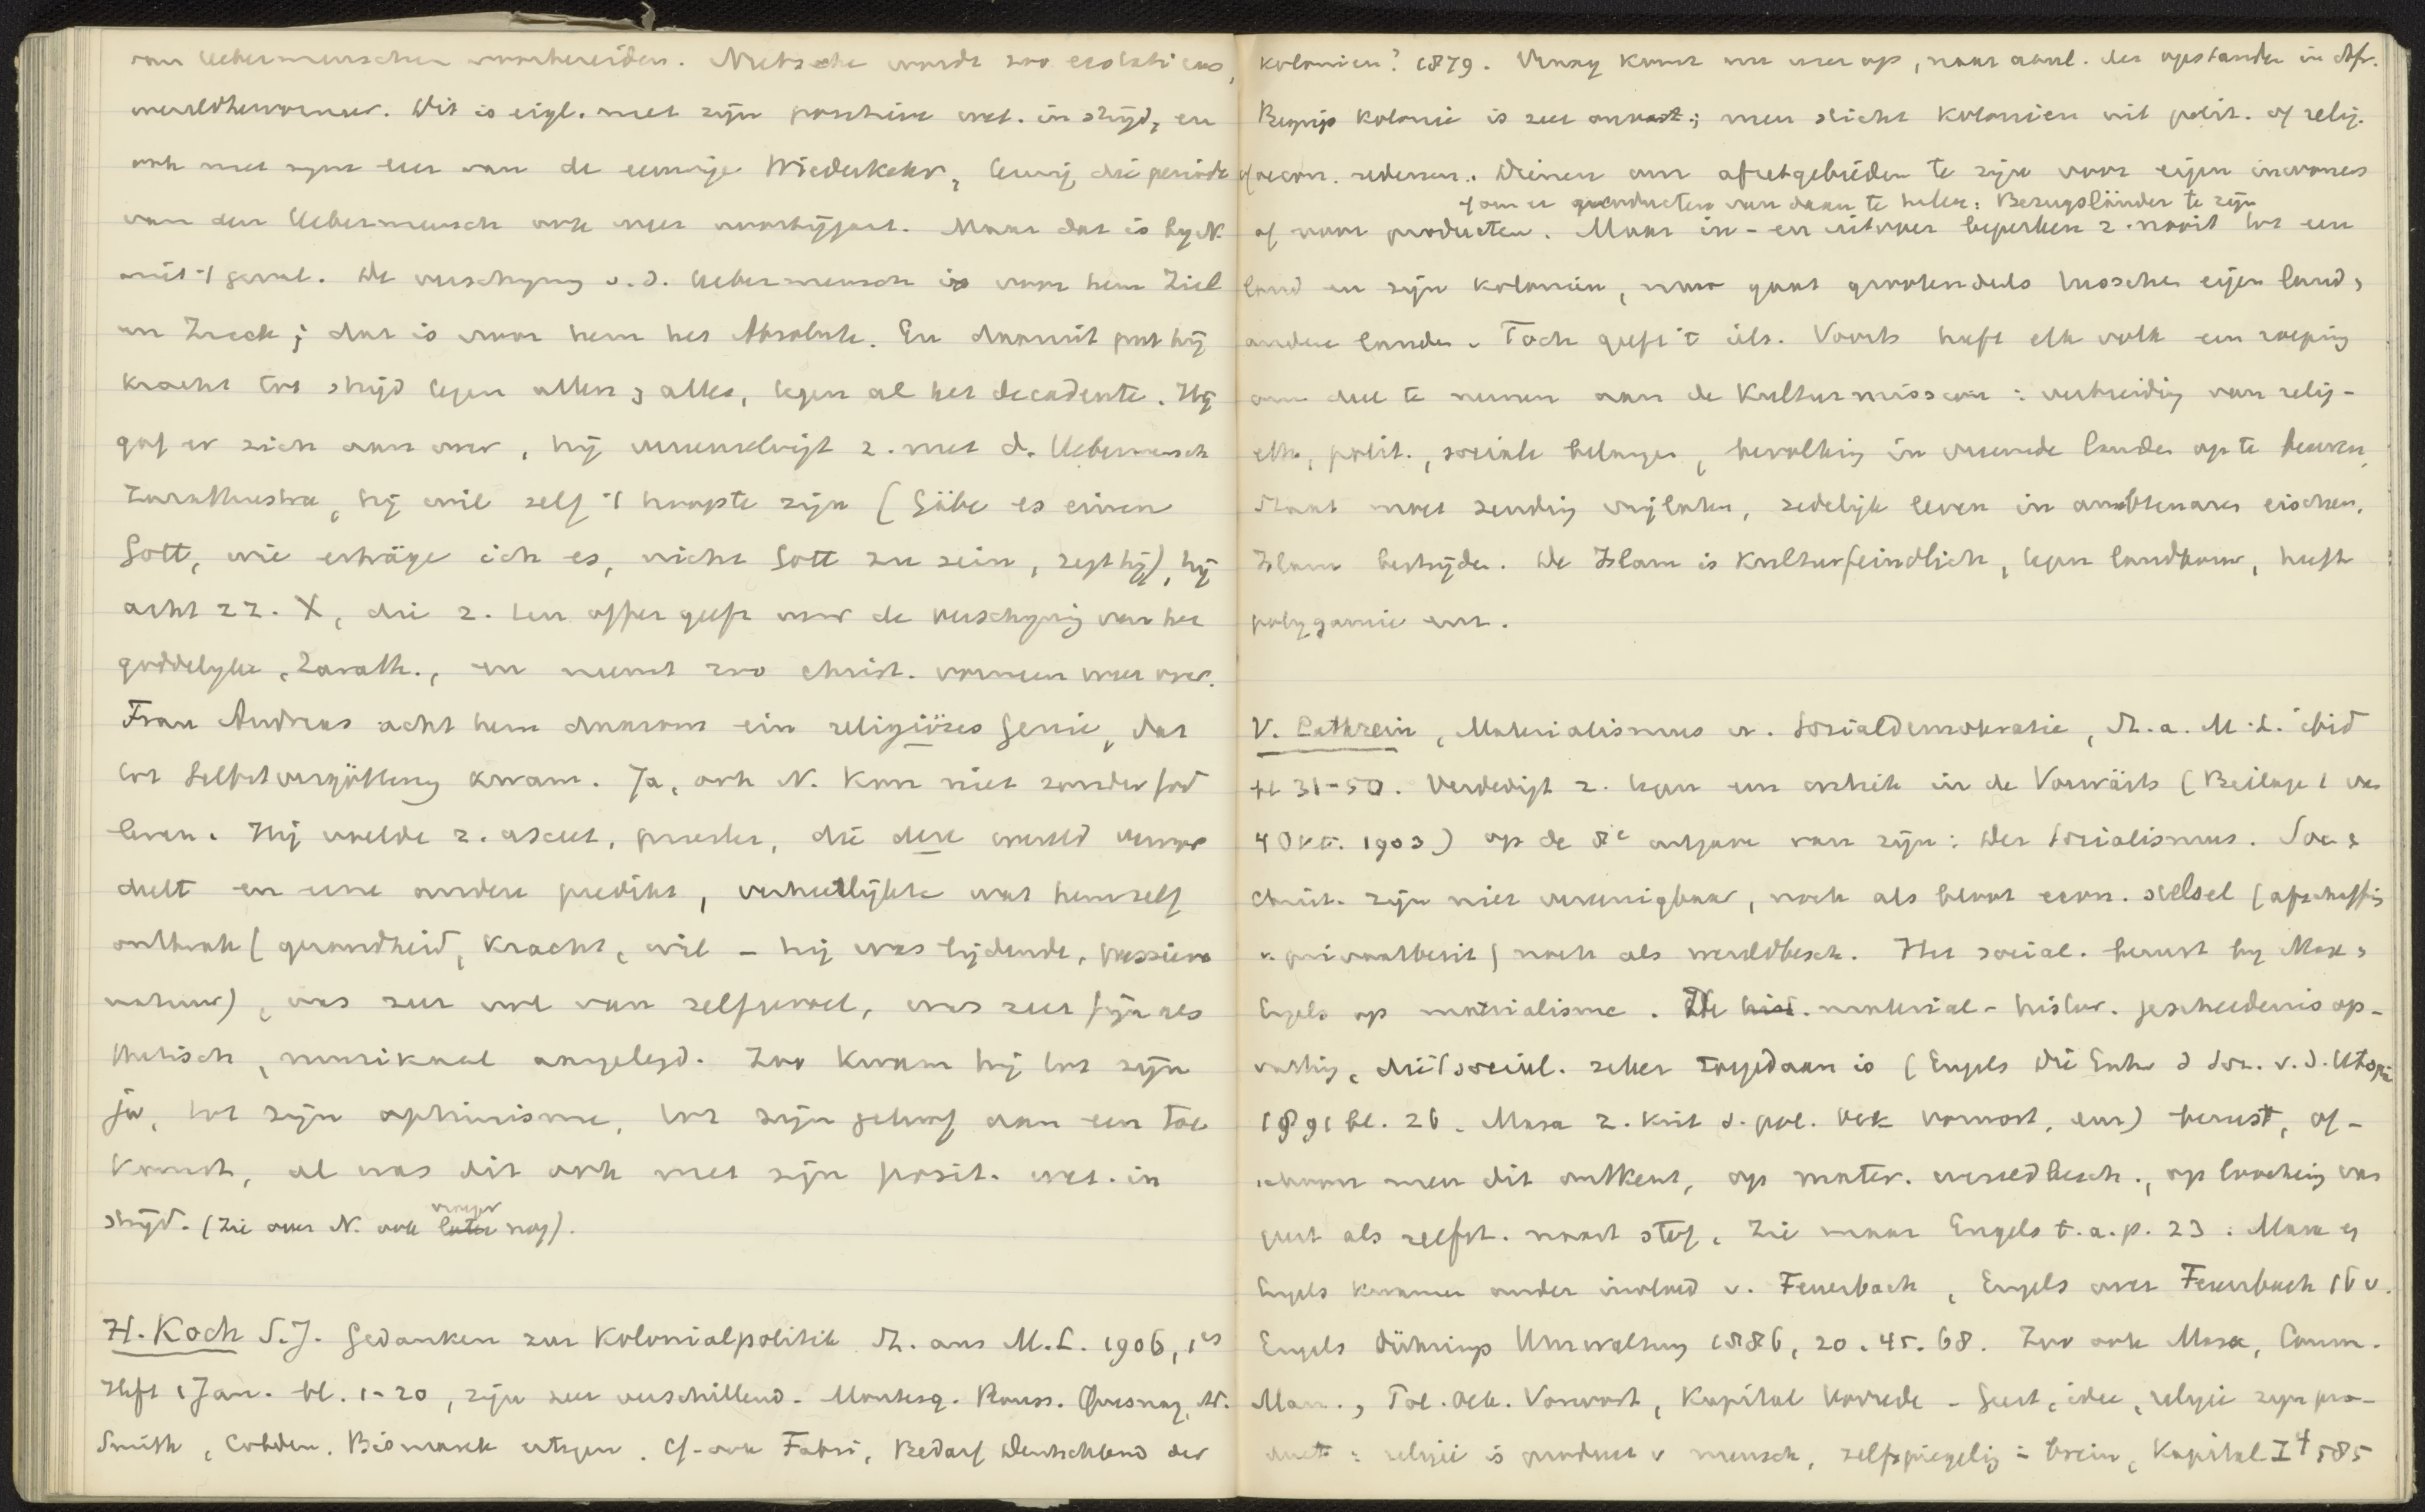 van Uebermenschen voorbereiden. Nietzsche wordt zoo
wereldhervormer. Dit is eigl. met zijn positieve wet. in strijd, en
ook met zijne leer van de eeuwige Wiederkehr, tenzij die periode
van den Uebermensch ook weer voorbijgaat. Maar dat is bij N.
niet 't geval. De verschijning v.d. Uebermensch is voor hem Ziel
en Zweck; dat is voor hem het Absolute. En daaruit put hij
kracht tot strijd tegen allen & alles, tegen al het decadente. Hij
gaf er zich aan over, hij vereenzelvigt z. met d. Uebermensch
Zarathustra, hij wil zelf 't hoogste zijn (Gäbe es einen
Gott, wie ertrüge ich es, nicht Gott zu sein, zegt hij), hij
acht zz. X, die z. ten offer geeft voor de verschijning van het
goddelijke, Zarath., en neemt zoo christ. vormen weer over.
Frau Andreas acht hem daarom ein religiöses Genie, dat
tot Selbstvergötterung kwam. Ja, ook N. kon niet zonder God
leven. Hij voelde z. asceet, priester, die deze wereld veroor
deelt en eene andere predikt, verheerlijkte wat hemzelf
ontbrak (gezondheid, kracht, wil - hij was lijdende, passieve
natuur), was zeer vol van zelfgevoel, was zeer fijn aes
thetisch, muzikaal aangelegd. Zoo kwam hij tot zijn
ja, tot zijn optimisme, tot zijn geloof aan een toe
komst, al was dit ook met zijn posit. wet. in
strijd. (Zie over N. ook later vroeger nog).
H. Koch S.J. Gedanken zur Kolonialpolitik St. aus M.L. 1906, 1es
Heft 1 Jan. bl. 1-20, zijn zeer verschillend. Montesq. Rouss. Quesnay, Ad.
Smith, Cobden, Bismarck ertegen. Cf. ook Fabri, Bedarf Deutschland der
kolonien? 1879. Vraag komt nu weer op, naar aanl. der opstanden in Afr.
Begrip kolonie is zeer onvast; men sticht kolonien uit polit. of relig.
of oecon. redenen. Dienen om afzetgebieden te zijn voor eigen inwoners
of om er producten van daan te halen: Bezugsländer te zijn
of voor producten. Maar in- en uitvoer beperken z. nooit tot een
land en zijn kolonien, maar gaat grootendeels tusschen eigen land &
andere landen. Toch geeft 't iets. Voorts heeft elk volk een roeping
om deel te nemen aan de Kulturmission: verbreiding van relig-
eth., polit., sociale belangen, bevolking in vreemde landen op te beuren,
Staat moet zending vrijlaten, zedelijk leven in ambtenaren eischen,
Islam bestrijden. De Islam is Kulturfeindlich, tegen landbouw, heeft
polygamie enz.
V. Cathrein, Materialismus u. Sozialdemokratie, St. a. M.L. ibid
bl 31-50. Verdedigt z. tegen een critiek in de Vorwärts (Beilage 1 van
4 Okt. 1903) op de 8e uitgave van zijn: Der Sozialismus. Soc. &
christ. zijn niet vereenigbaar, noch als bloot econ. stelsel (afschaffing
v. privaatbezit) noch als wereldbesch. Het social. berust bij Marx &
Engels op materialisme. De hist. material-histor. geschiedenisop-
vatting, die 't social. zeker toegedaan is (Engels Die Entw d Soz. v. d. Utopie
1891 bl. 26. Marx Z. Krit d. pol. Oek Vorwort, enz) berust, of-
schoon men dit ontkent, op mater. wereldbesch., op loochening van
geest als zelfst. naast stof. Zie maar Engels t.a.p. 23. Marx en
Engels kwamen onder invloed v. Feuerbach, Engels over Feuerbach 16 v.
Engels Dührings Umwälzung 1886, 20. 45. 68. Zoo ook Marx, Comm.
Man., Pol. Oek. Vorwort, Kapital Vorrede - Geest, idee, religie zijn pro-
duct: religie is product v mensch, zelfspiegeling = brein, Kapital I4 585